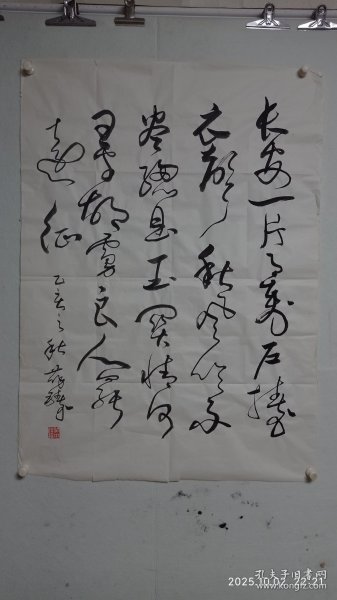 長安一片月萬户擣
衣聲秋風吹不
盡總是玉關情何
日平胡虜良人罷
遠征
乙亥之秋
2025.10.02 22:21
孔夫子旧书网
www.kongfz.com